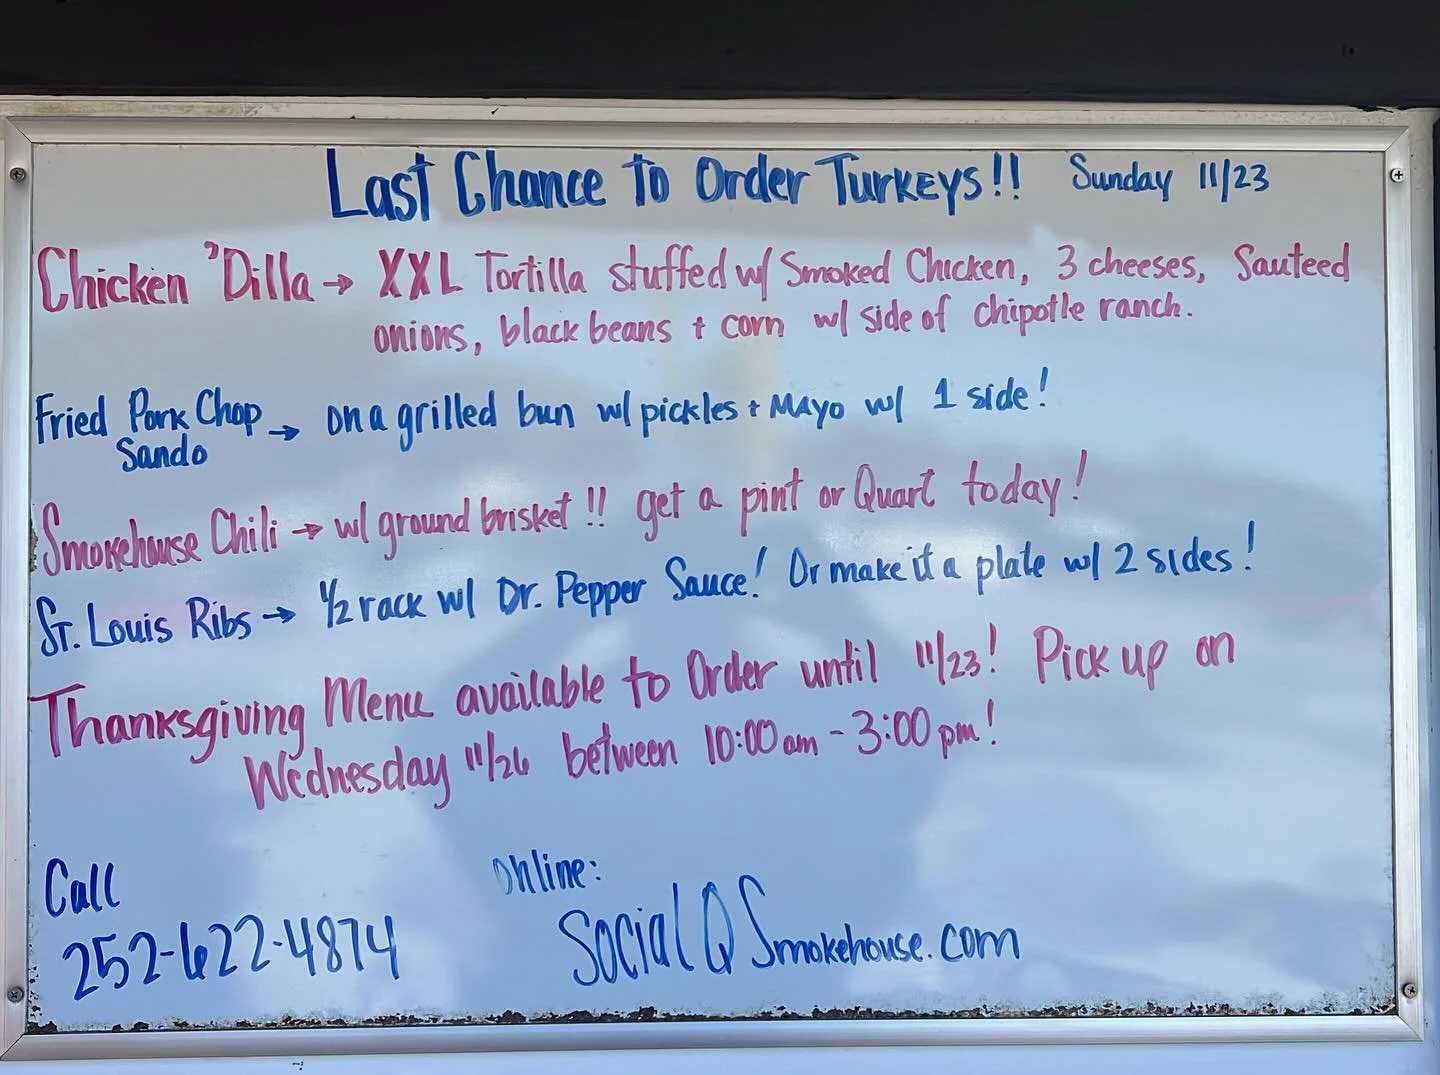 Last Chance to Order Turkeys!! Sunday 11/23
Chicken 'Dilla → XXL Tortilla stuffed w/ Smoked Chicken, 3 cheeses, Sauteed
onions, black beans + corn w/ side of chipotle ranch.
Fried Pork Chop → on a grilled bun w/ pickles + MAYO w/ 1 side!
Sando
Smokehouse Chili → w/ ground brisket!! get a pint or Quart today!
St. Louis Ribs → 1/2 rack w/ Dr. Pepper Sauce! Or make it a plate w/ 2 sides!
Thanksgiving Menu available to Order until 11/23! Pick up on
Wednesday 11/26 between 10:00 am - 3:00 pm!
Call
252-622-4874
Online:
Social Q Smokehouse.com